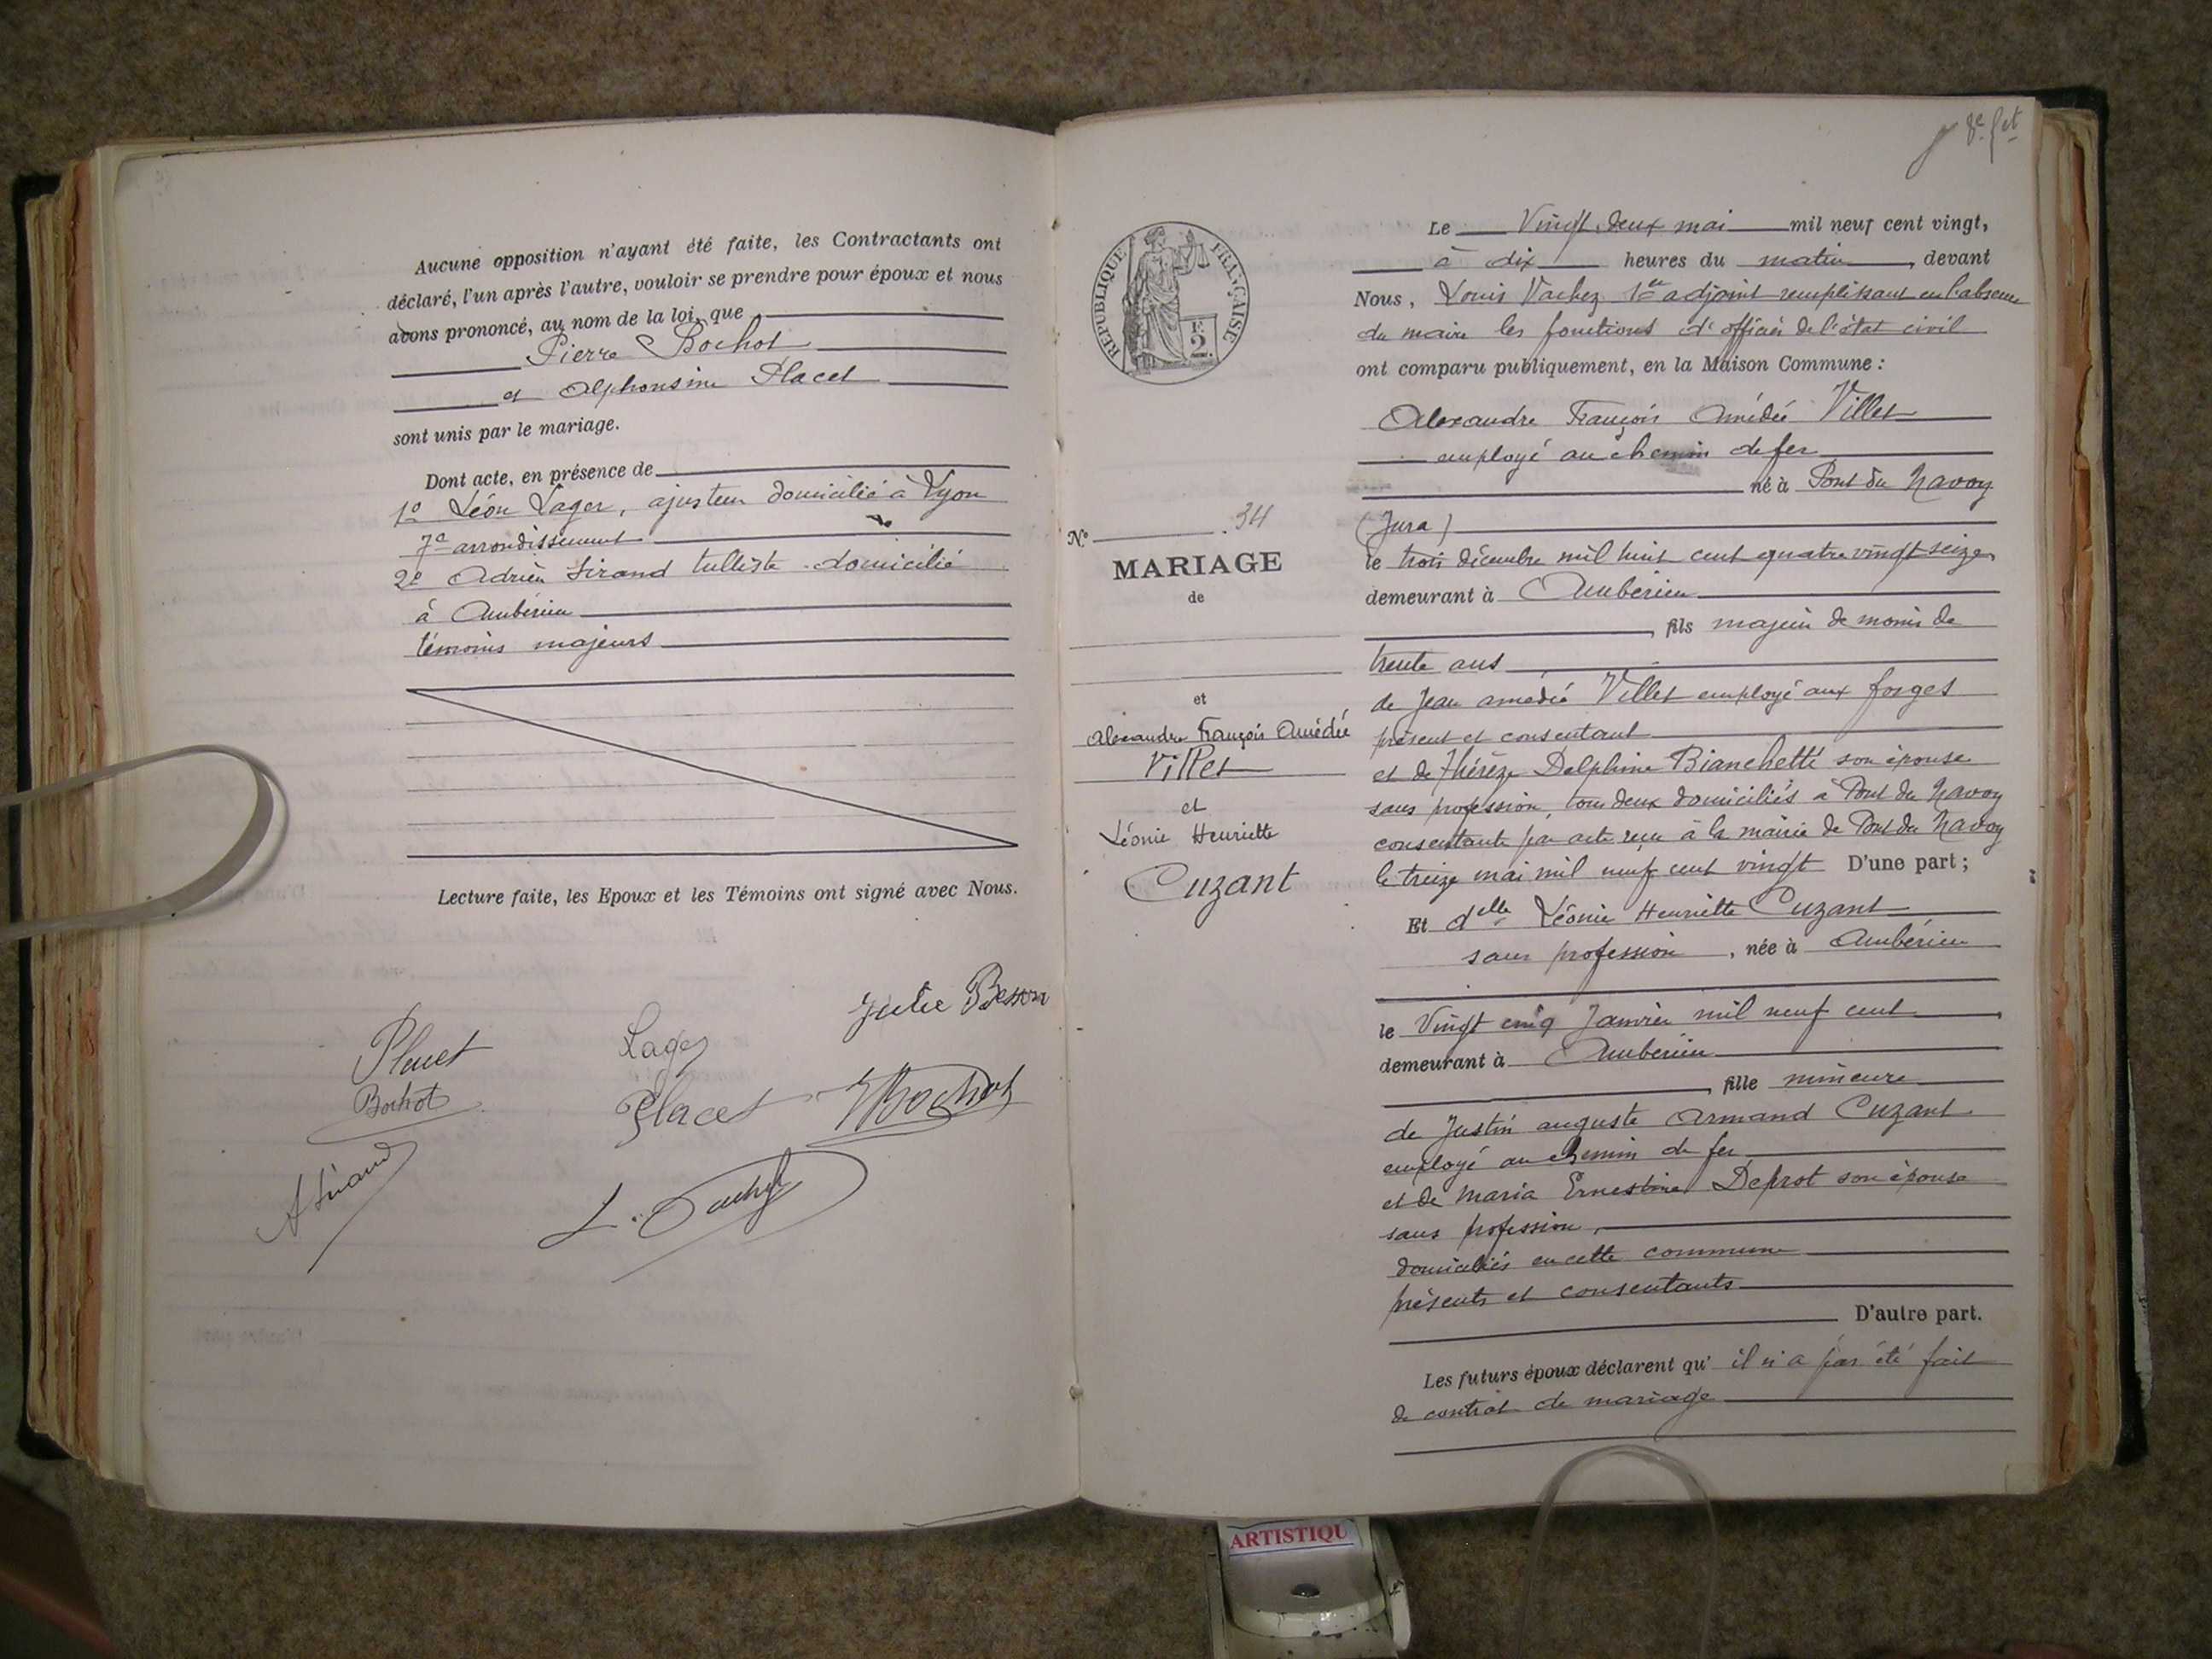 Aucune opposition n'ayant été faite, les Contractants ont
déclaré, l'un après l'autre, vouloir se prendre pour époux et nous
avons prononcé, au nom de la loi, que
Pierre Bochot
et Alphonsine Placet
sont unis par le mariage.
Dont acte, en présence de
1º Léon Lager, ajusteur domicilié à Lyon
7e arrondissement
2º Adrien Sirand tulliste domicilié
à Ambérieu
témoins majeurs
Lecture faite, les Epoux et les Témoins ont signé avec Nous.
Julie
Placet
Lager
Bochot
Placet
Bochot
A Sirand
L. Vachez
8e fet
RÉPUBLIQUE FRANÇAISE
Nº 34
MARIAGE
de
et
Alexandre François Amédée
Villet
et
Léonie Henriette
Cuzant
Le Vingt deux mai mil neuf cent vingt,
à dix heures du matin, devant
Nous, Louis Vachez 1er adjoint remplissant en l'absence
du maire les fonctions d'officier de l'état civil
ont comparu publiquement, en la Maison Commune :
Alexandre François Amédée Villet
employé au chemin de fer
né à Pont du Navoy
(Jura)
le trois décembre mil huit cent quatre vingt seize
demeurant à Ambérieu
, fils majeur de moins de
trente ans
de Jean amédée Villet employé aux forges
présent et consentant
et de Thérèze Delphine Bianchetti son épouse
sans profession, tous deux domiciliés à Pont du Navoy
consentante par acte reçu à la mairie de Pont du Navoy
le treize mai mil neuf cent vingt D'une part ;
Et delle Léonie Henriette Cuzant
sans profession , née à Ambérieu
le Vingt cinq Janvier mil neuf cent
demeurant à Ambérieu
, fille mineure
de Justin auguste Armand Cuzant
employé au chemin de fer
et de Maria Ernestine Deprot son épouse
sans profession,
domiciliés en cette commune
présents et consentants
D'autre part.
Les futurs époux déclarent qu' il n'a pas été fait
de contrat de mariage
ARTISTIQU